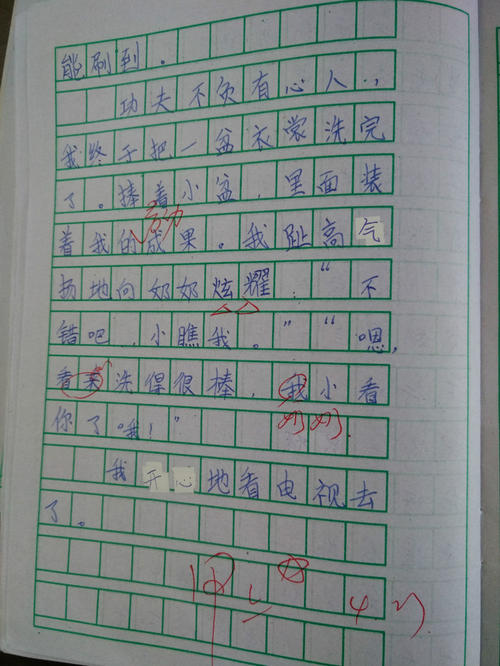 能刷到。
功夫不负有心人，
我终于把一盆衣裳洗完
了。捧着小盆，里面装
劳动
着我的成果。我趾高气
扬地向奶奶炫耀：“不
错吧，小瞧我。”“嗯，
看来洗得很棒，我小看
奶奶
你了哦！”
我开心地看电视去
了。